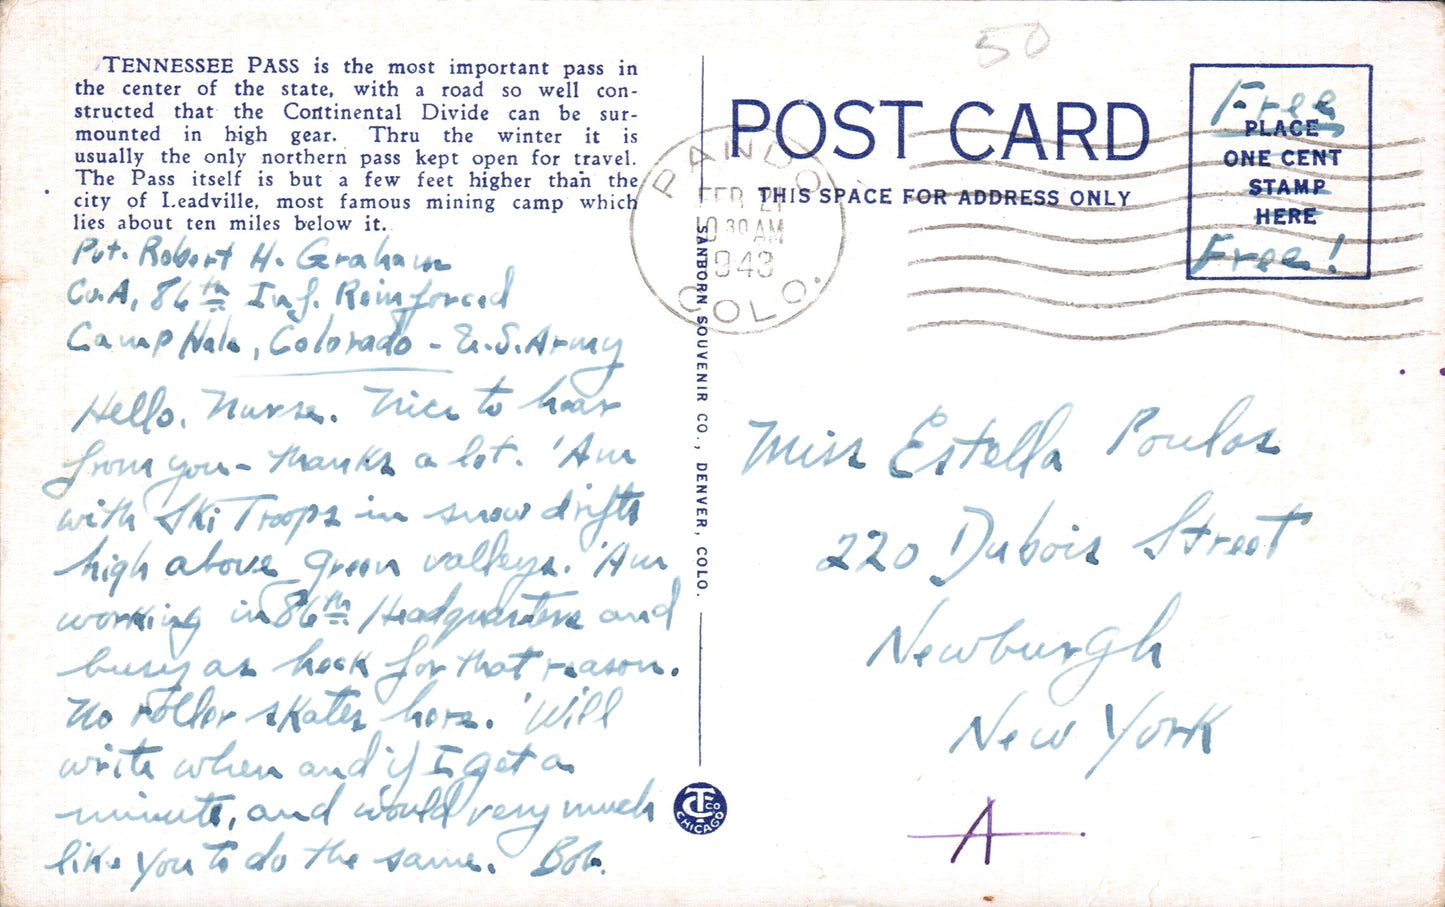 TENNESSEE PASS is the most important pass in
the center of the state, with a road so well con-
structed that the Continental Divide can be sur-
mounted in high gear. Thru the winter it is
usually the only northern pass kept open for travel.
The Pass itself is but a few feet higher than the
city of Leadville, most famous mining camp which
lies about ten miles below it.
Pvt. Robert H. Graham
Co. A, 86th Inf. Reinforced
Camp Hale, Colorado - U.S. Army
Hello, Nurse. Nice to hear
from you - thanks a lot. 'Am
with Ski Troops in snow drifts
high above green valleys. 'Am
working in 86th Headquarters and
busy as heck for that reason.
No roller skates here. 'Will
write when and if I get a
minute, and would very much
like you to do the same. Bob.
SANBORN SOUVENIR CO., DENVER, COLO.
CT CO
CHICAGO
50
POST CARD
THIS SPACE FOR ADDRESS ONLY
PANDO
FEB 21
30 AM
1943
COLO.
Free
PLACE
ONE CENT
STAMP
HERE
Free!
Miss Estella Poulos
220 Dubois Street
Newburgh
New York
A